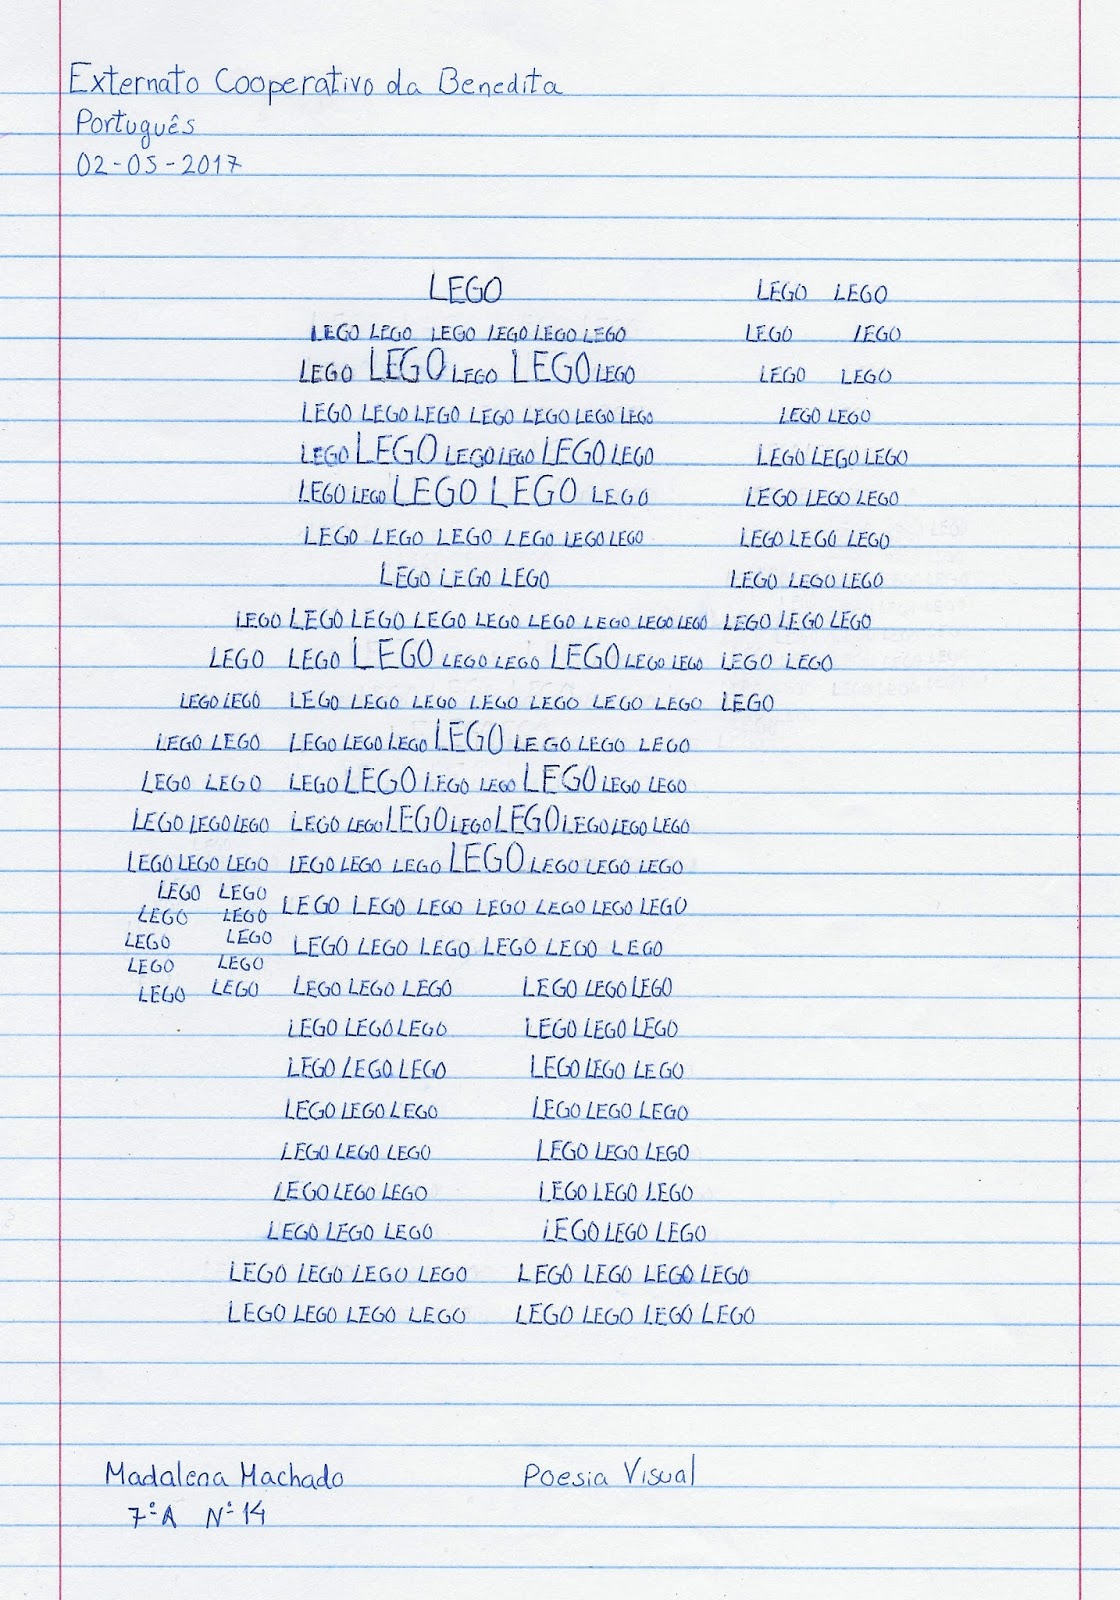 Externato Cooperativo da Benedita
Português
02-05-2017
LEGO LEGO LEGO
LEGO LEGO LEGO LEGO LEGO LEGO LEGO LEGO
LEGO LEGO LEGO LEGO LEGO LEGO LEGO
LEGO LEGO LEGO LEGO LEGO LEGO LEGO LEGO LEGO
LEGO LEGO LEGO LEGO LEGO LEGO LEGO LEGO LEGO
LEGO LEGO LEGO LEGO LEGO LEGO LEGO LEGO
LEGO LEGO LEGO LEGO LEGO LEGO LEGO LEGO LEGO
LEGO LEGO LEGO LEGO LEGO LEGO
LEGO LEGO LEGO LEGO LEGO LEGO LEGO LEGO LEGO LEGO LEGO LEGO
LEGO LEGO LEGO LEGO LEGO LEGO LEGO LEGO LEGO LEGO
LEGO LEGO LEGO LEGO LEGO LEGO LEGO LEGO LEGO LEGO
LEGO LEGO LEGO LEGO LEGO LEGO LEGO LEGO LEGO
LEGO LEGO LEGO LEGO LEGO LEGO LEGO LEGO LEGO
LEGO LEGO LEGO LEGO LEGO LEGO LEGO LEGO LEGO LEGO LEGO
LEGO LEGO LEGO LEGO LEGO LEGO LEGO LEGO LEGO LEGO
LEGO LEGO
LEGO LEGO LEGO LEGO LEGO LEGO LEGO LEGO LEGO
LEGO LEGO LEGO LEGO LEGO LEGO LEGO LEGO
LEGO LEGO
LEGO LEGO LEGO LEGO LEGO LEGO LEGO LEGO
LEGO LEGO LEGO LEGO LEGO LEGO
LEGO LEGO LEGO LEGO LEGO LEGO
LEGO LEGO LEGO LEGO LEGO LEGO
LEGO LEGO LEGO LEGO LEGO LEGO
LEGO LEGO LEGO LEGO LEGO LEGO
LEGO LEGO LEGO LEGO LEGO LEGO
LEGO LEGO LEGO LEGO LEGO LEGO LEGO LEGO
LEGO LEGO LEGO LEGO LEGO LEGO LEGO LEGO
Madalena Machado Poesia Visual
7ºA Nº14